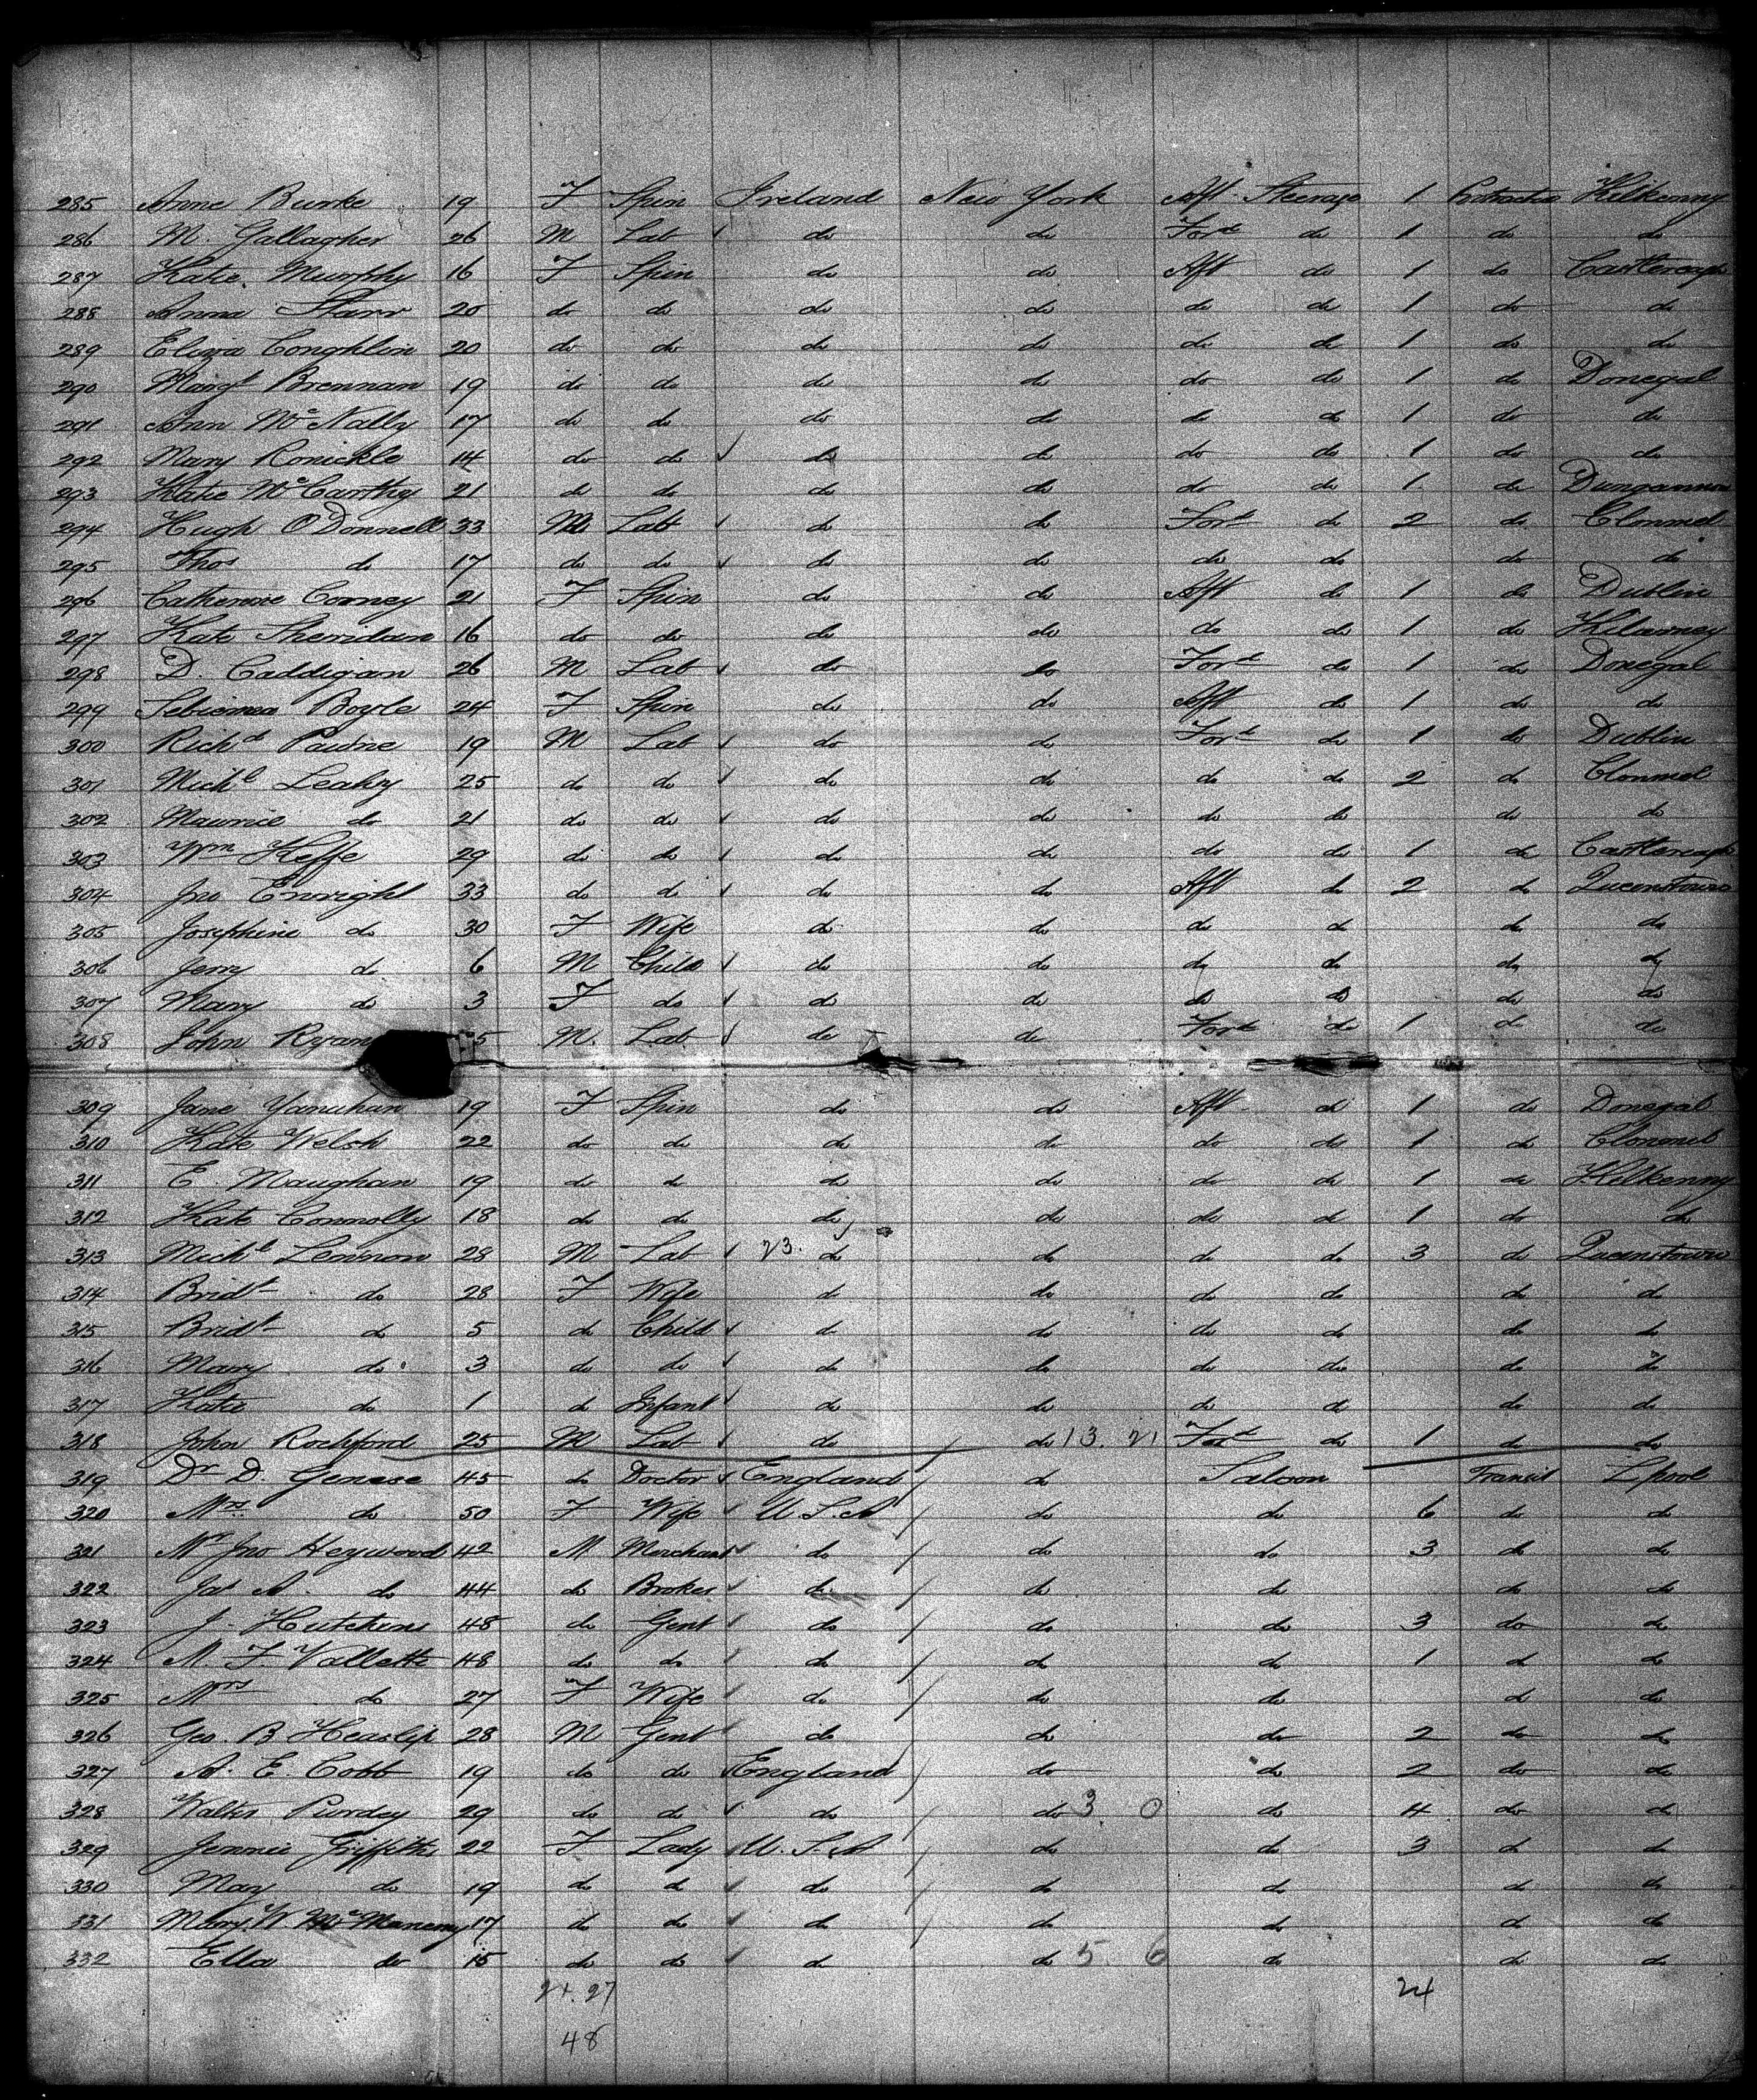 285 Anne Burke 19 F Spin Ireland New York Aft Steerage 1 Protracted Kilkenny
286 M. Gallagher 26 M Lab do do Ford do 1 do do
287 Katie Murphy 16 F Spin do do Aft do 1 do Castlereagh
288 Anna Starr 20 do do do do do do 1 do do
289 Eliza Conghlin 20 do do do do do do 1 do do
290 Margt Brennan 19 do do do do do do 1 do Donegal
291 Ann McNally 17 do do do do do do 1 do do
292 Mary Ronickle 14 do do do do do do 1 do do
293 Katie McCarthy 21 do do do do do do 1 do Dungannon
294 Hugh O'Donnell 33 M Labt do do Ford do 2 do Clonmel
295 Thos do 17 do do do do do do do do
296 Catherine Cooney 21 F Spin do do Aft do 1 do Dublin
297 Kate Sheridan 16 do do do do do do 1 do Kilarney
298 D. Caddigan 26 M Lab do do Ford do 1 do Donegal
299 Boyle 24 F Spin do do Aft do 1 do do
300 Richd 19 M Lab do do Ford do 1 do Dublin
301 Michl Leahy 25 do do do do do do 2 do Clonmel
302 Maurice do 21 do do do do do do do do
303 Wm Keffe 29 do do do do do do 1 do Castlereagh
304 Jno Enright 33 do do do do Aft do 2 do Queenstown
305 Josephine do 30 F Wife do do do do do do
306 Jerry do 6 M Child do do do do do do
307 Mary do 3 F do do do do do do do
308 John Ryan 5 M. Lab do do Ford do 1 do do
309 Jane 19 F Spin do do Aft do 1 do Donegal
310 Kate Welsh 22 do do do do do do 1 do Clonmel
311 E. Maughan 19 do do do do do do 1 do Kilkenny
312 Kate Connolly 18 do do do do do do 1 do do
313 Michl Lennon 28 M Lab 23. do do do do 3 do Queenstown
314 Bridt do 28 F Wife do do do do do do
315 Bridt do 5 do Child do do do do do do
316 Mary do 3 do do do do do do do do
317 Katie do 1 do Infant do do do do do do
318 John Rochford 25 M Lab do do 13. 21 Ford do 1 do do
319 Dr D. Genese 45 do Doctor England do Saloon Transit Lpool
320 Mrs. do 50 F Wife U.S.A do do 6 do do
321 Mr Jno Heywood 42 M Merchant do do do 3 do do
322 Jas A. do 44 do Broker do do do do do
323 J. Hutchins 48 do Gent do do do 3 do do
324 M. F. Vallette 48 do do do do do 1 do do
325 Mrs do 27 F Wife do do do do do
326 Geo. B Heaslip 28 M Gent do do do 2 do do
327 A. E Cobb 19 do do England do do 2 do do
328 Walter Purdey 29 do do do do 3 0 do 4 do do
329 Jennie Griffith 22 F Lady U.S.A do do 3 do do
330 May do 19 do do do do do do do
331 Mary. W McManemy 17 do do do do do do do
332 Ella do 15 do do do do 5. 6 do do do
21. 27 24
48